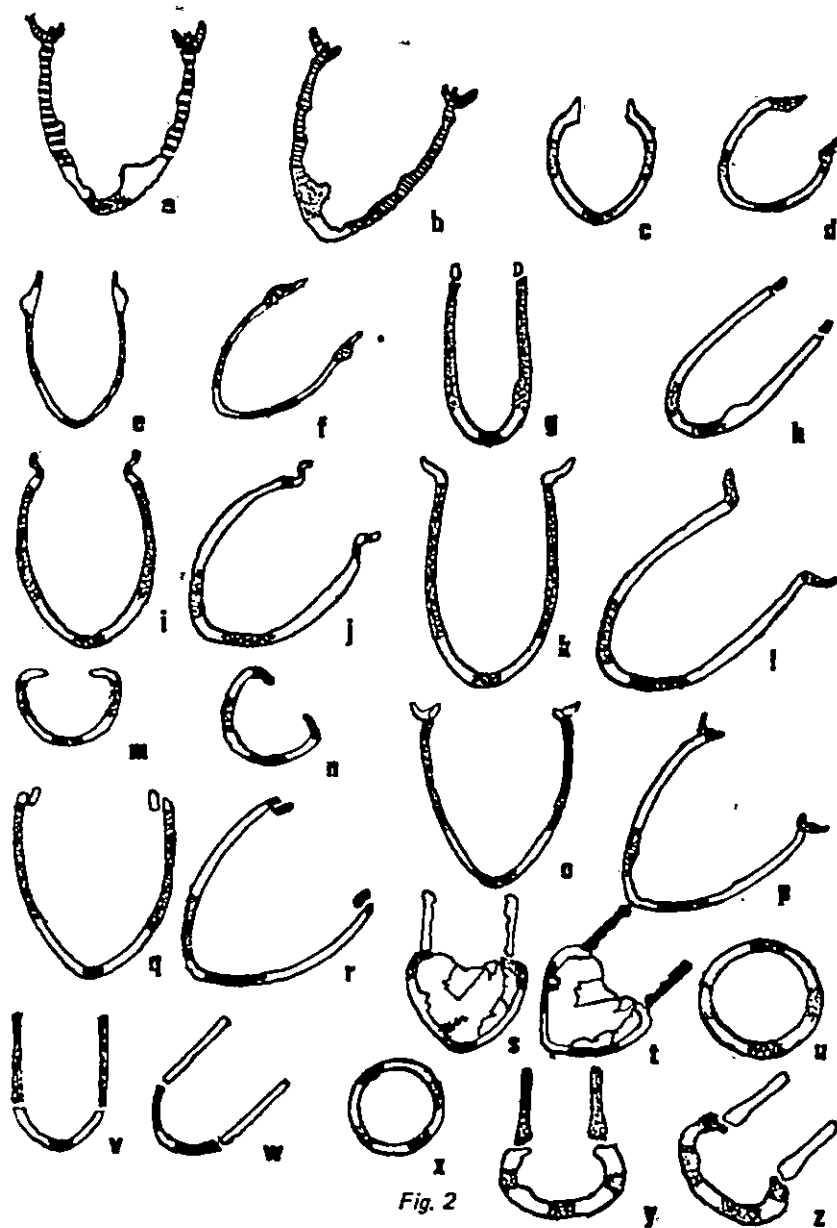 a b c d
e f g h
i j k l
m n o p
q r s t u
v w x y z
Fig. 2